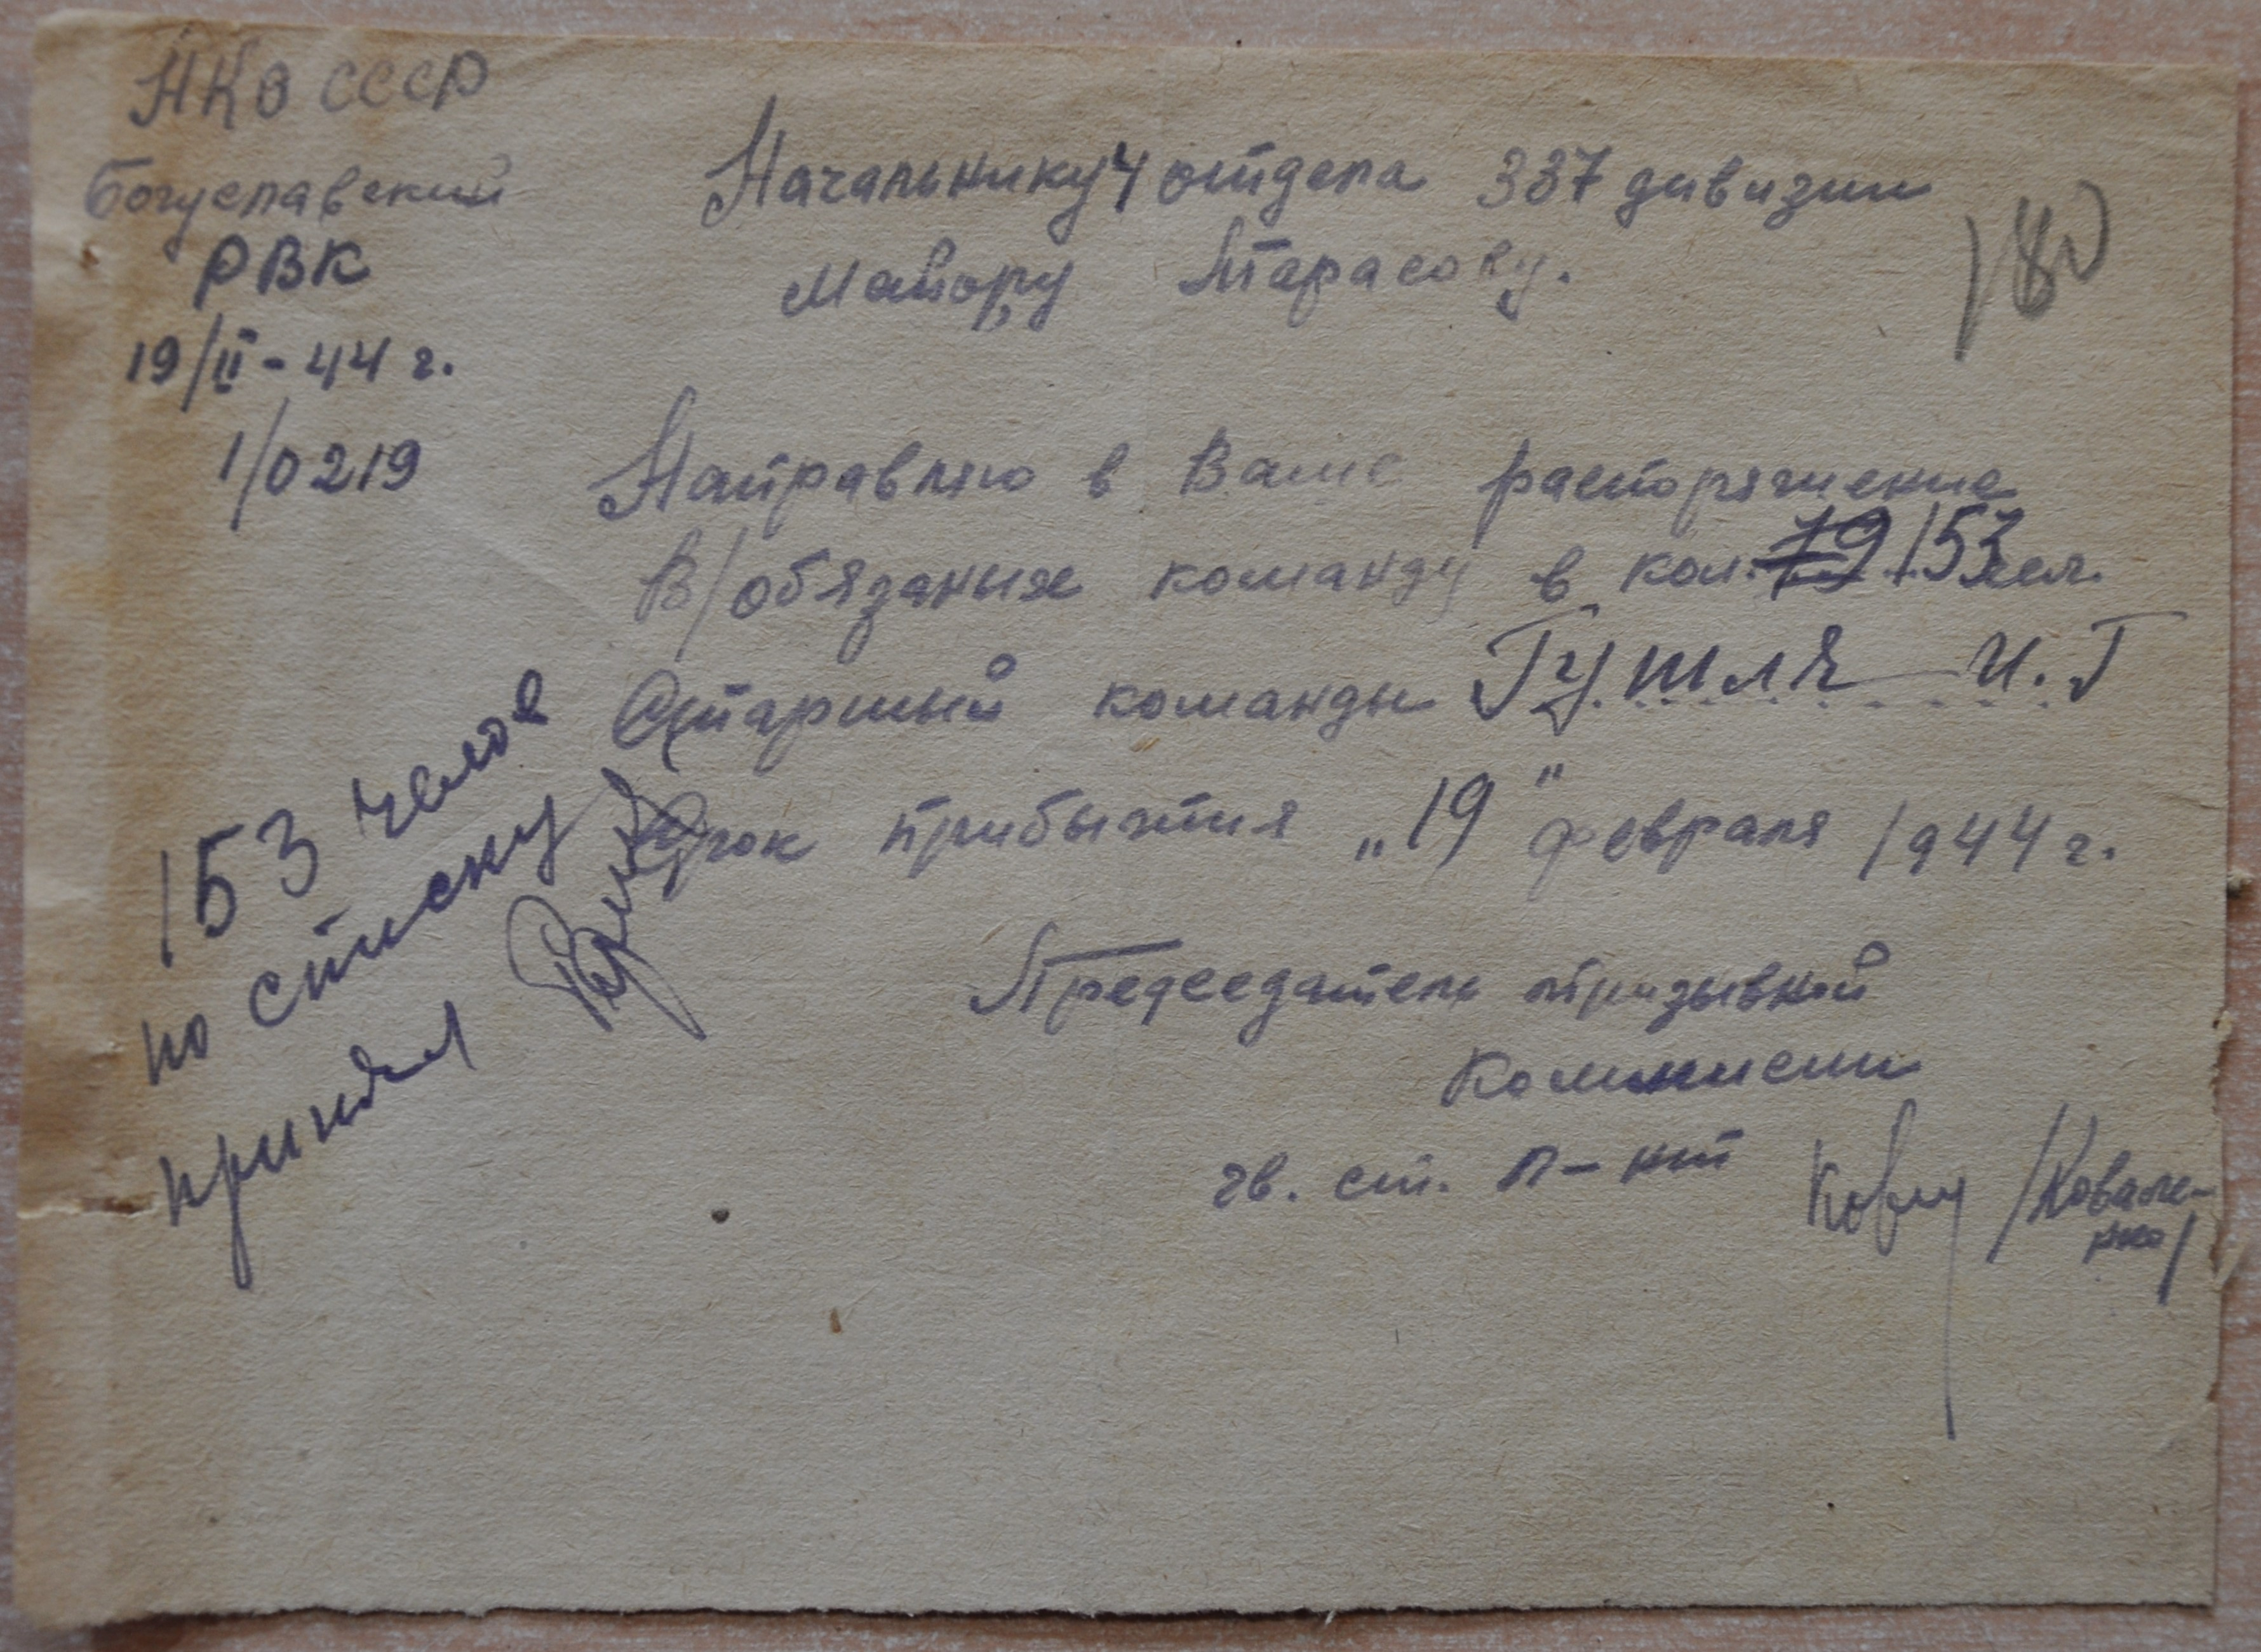 НКО СССР
Богуславский
РВК
19/II - 44 г.
1/0219
Начальнику 4 отдела 337 дивизии
Майору Тарасову.
180
Направляю в Ваше распоряжение
В/обязаных команду в кол. 79 153 чел.
Старший команды Гушля И.Г
Срок прибытия „19" февраля 1944 г.
Председатель призывной
Комиссии
гв. ст. л-нт /Ковале-
нко/
153 челов
по списку
принял